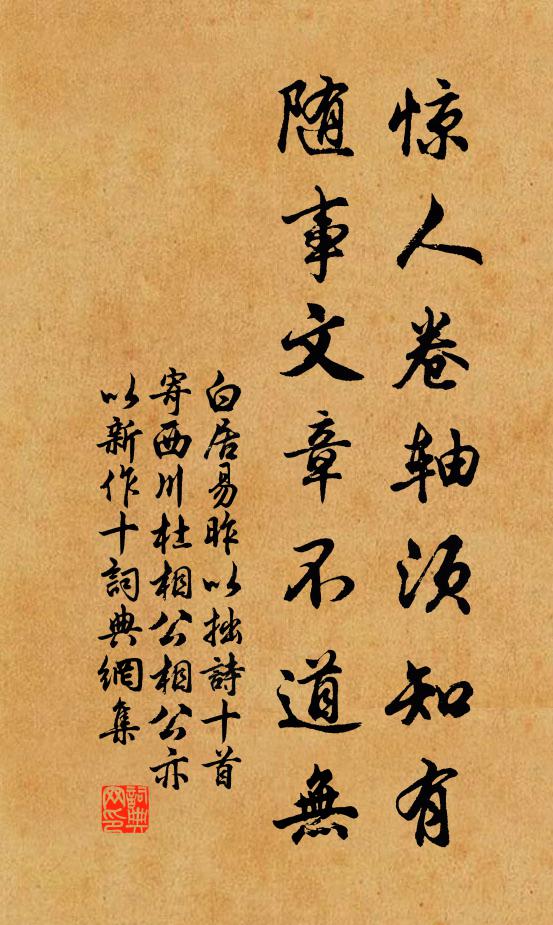 惊人卷轴须知有
随事文章不道無
白居易昨以拙詩十首
寄西川杜相公相公亦
以新作十詞典網集
詞典
网印